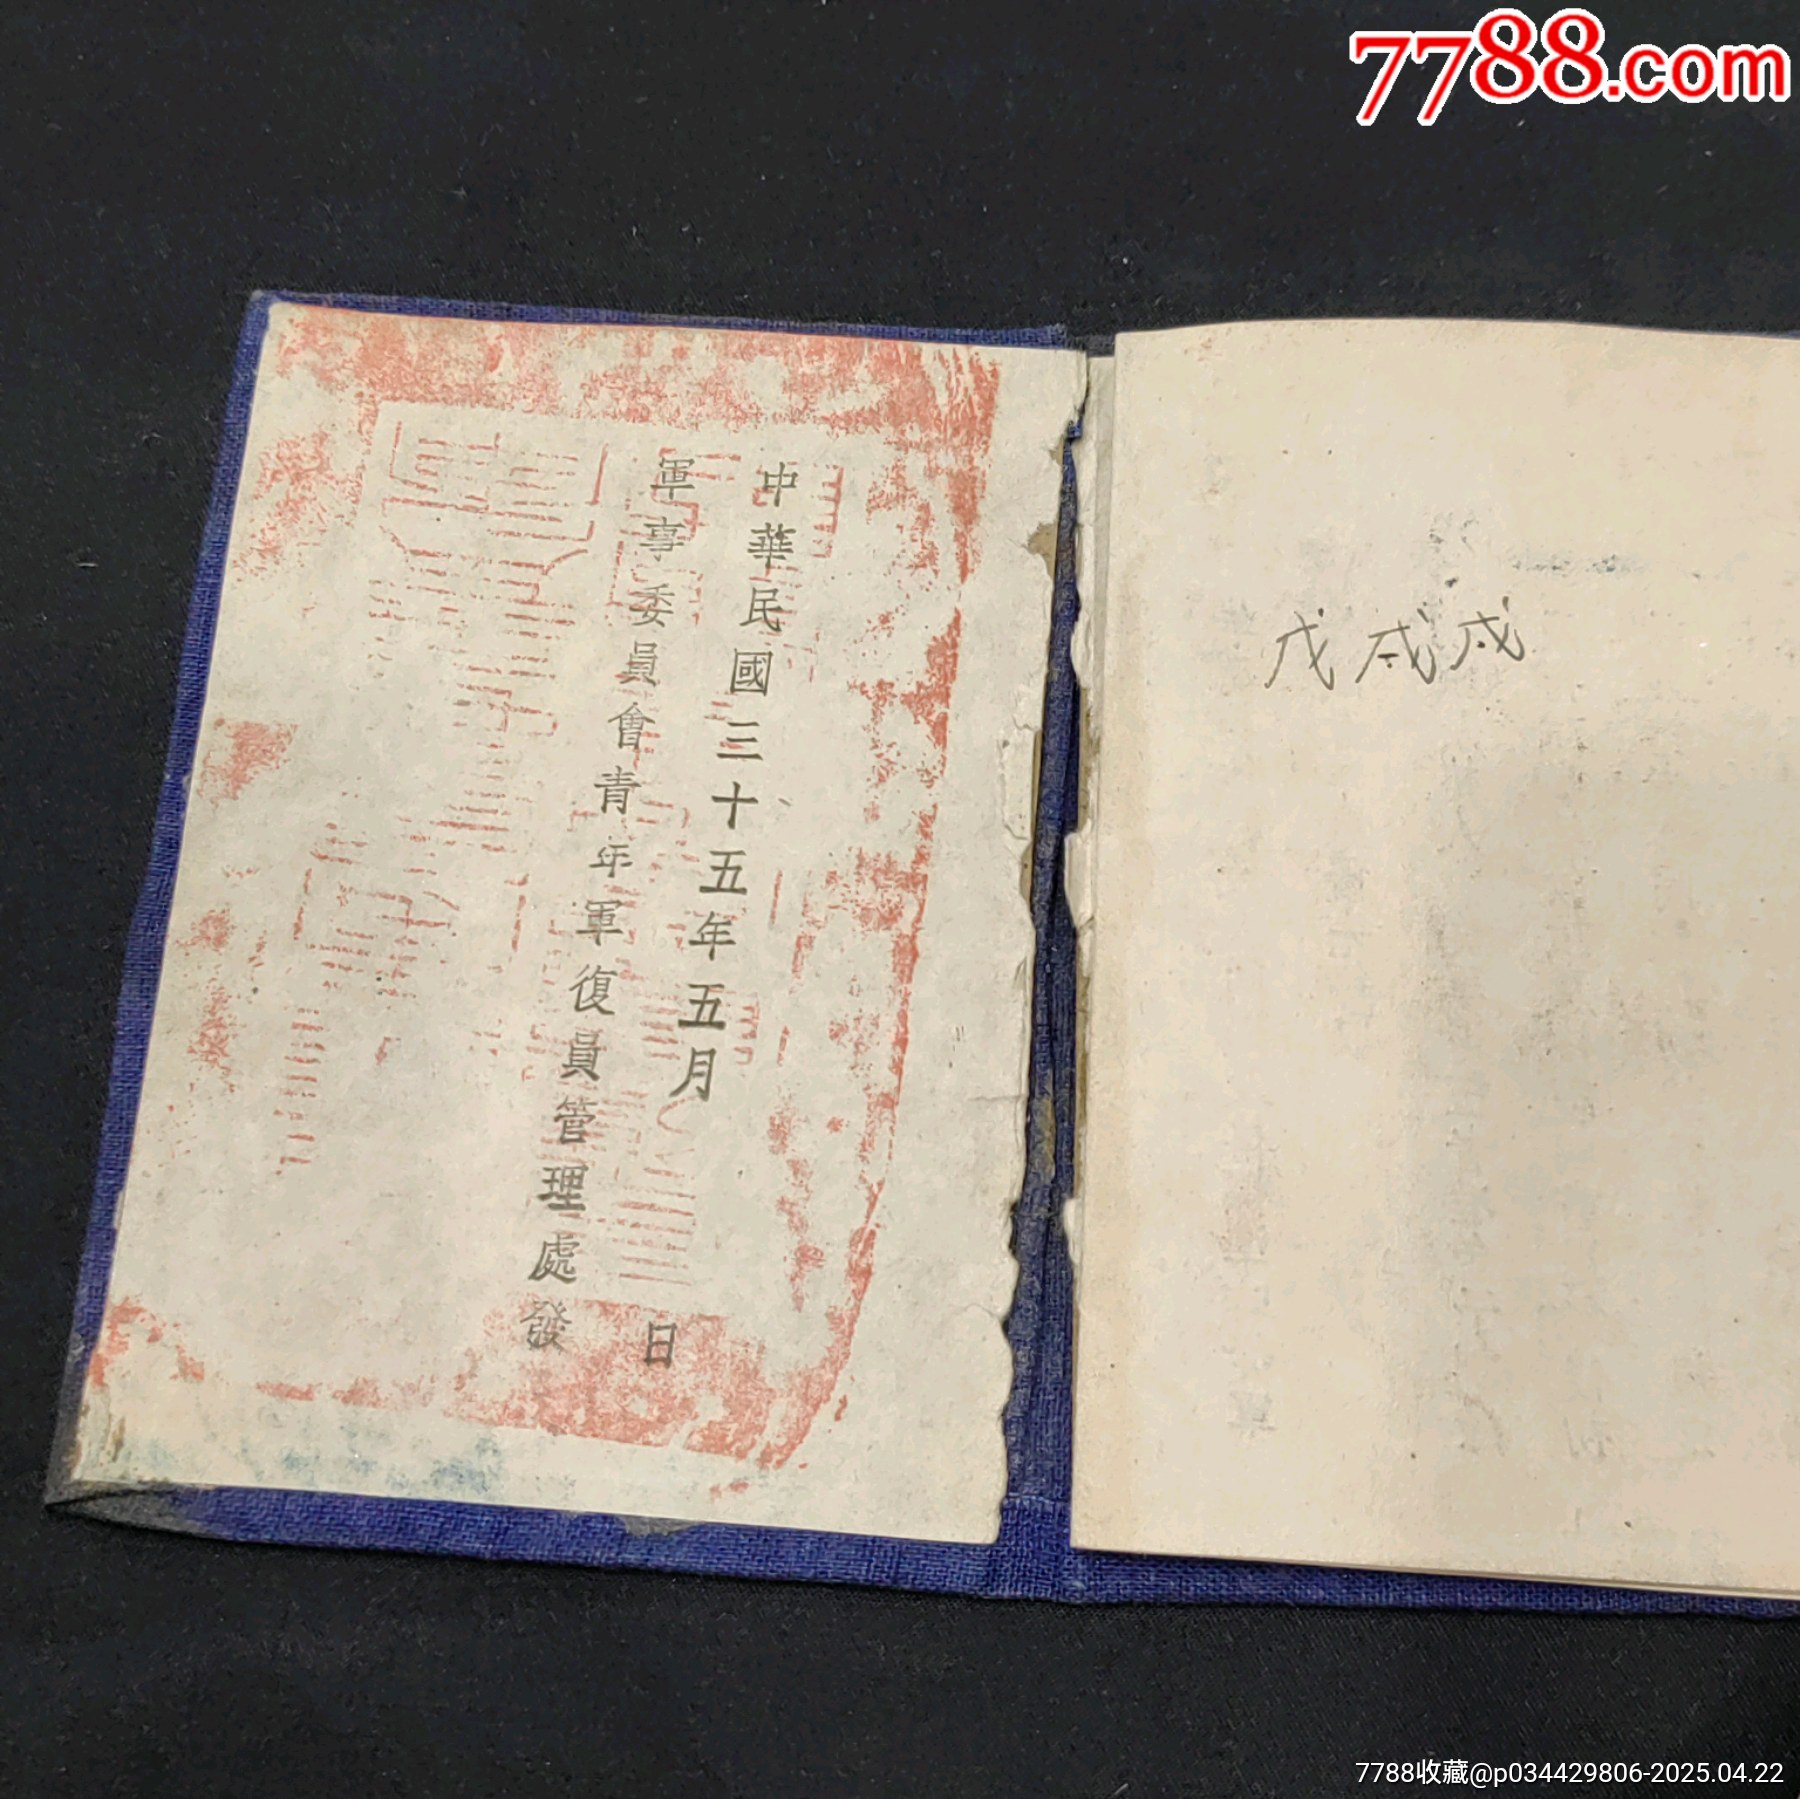 7788.com
中華民國三十五年五月　日
軍事委員會青年軍復員管理處發
戊戌戍
7788收藏@p034429806-2025.04.22